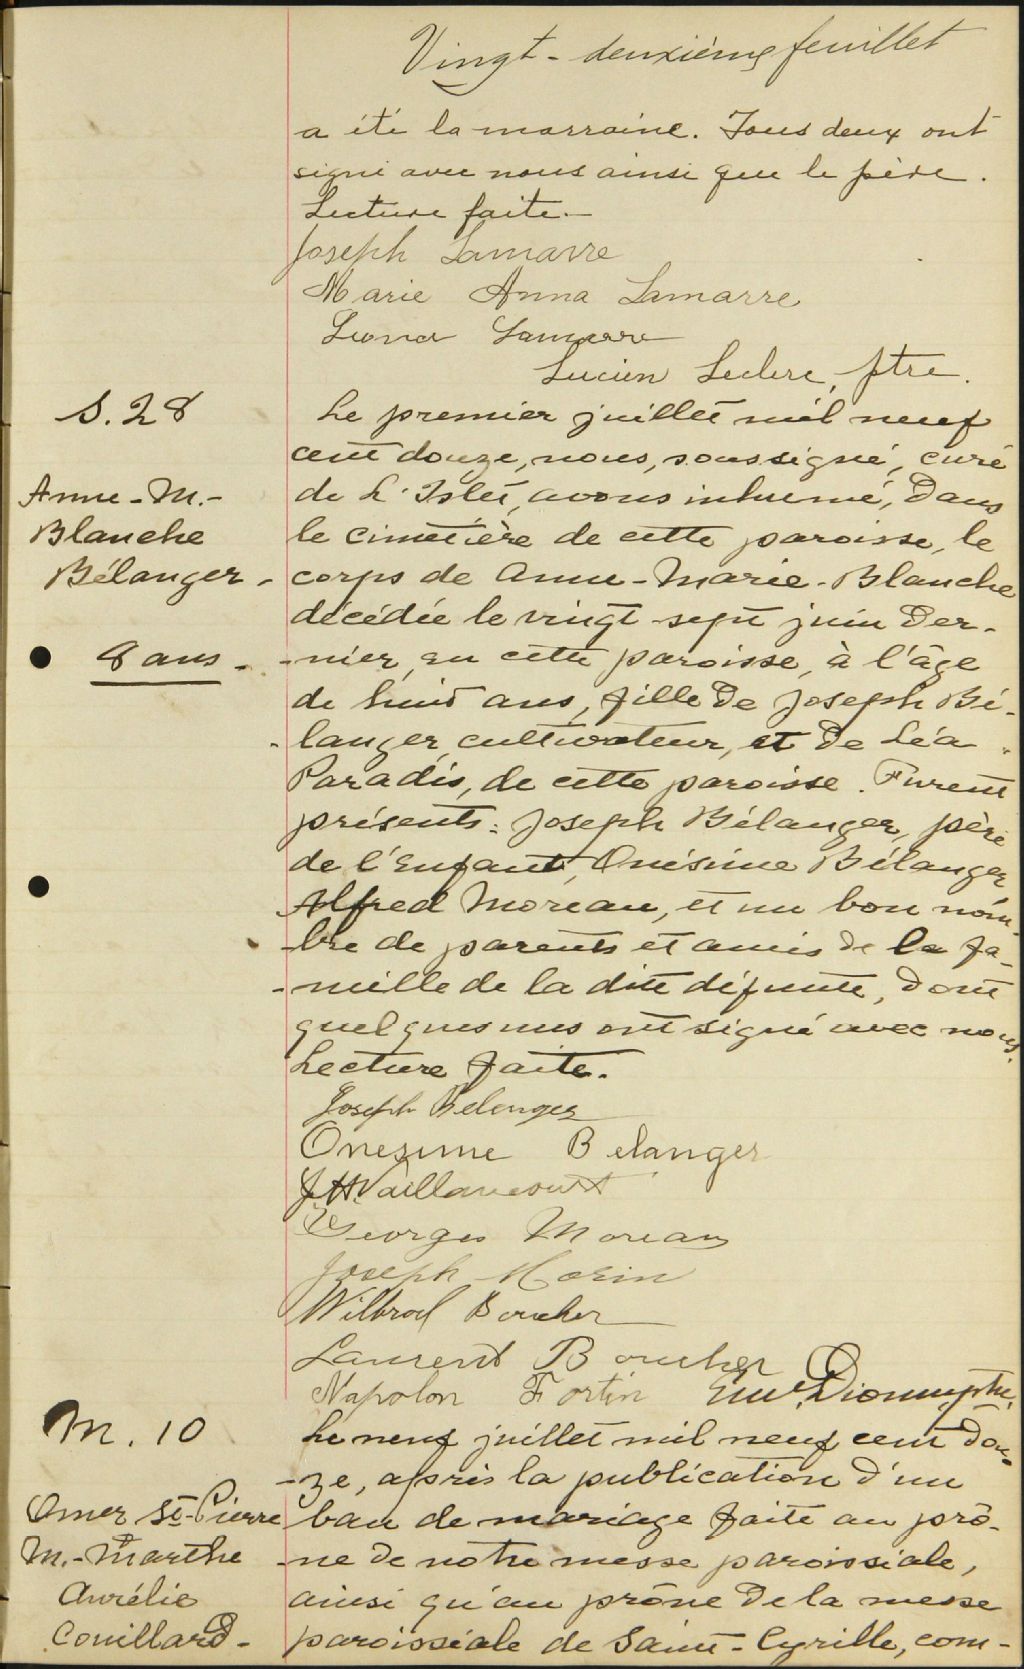 Vingt-deuxième feuillet
a été la marraine. Tous deux ont
signé avec nous ainsi que le père.
Lecture faite.—
Joseph Lamarre
Marie Anna Lamarre
Lamarre
Lucien Leclerc, ptre.
S. 28
Anne-M.-
Blanche
Bélanger.
8 ans.
Le premier juillet mil neuf
cent douze, nous, soussigné, curé
de L'Islet, avons inhumé, dans
le cimetière de cette paroisse, le
corps de Anne-Marie-Blanche
décédée le vingt-sept juin der-
-nier, en cette paroisse, à l'âge
de huit ans, fille de Joseph Bé-
-langer, cultivateur, et de Léa
Paradis, de cette paroisse. Furent
présents: Joseph Bélanger, père
de l'enfant, Onésime Bélanger,
Alfred Moreau, et un bon nom-
-bre de parents et amis de la fa-
-mille de la dite défunte, dont
quelques uns ont signé avec nous.
Lecture faite.
Joseph Belenger
Onesime Belanger
J. H. Vaillancourt
Georges Moreau
Joseph Morin
Wilbrod Boucher
Laurent Boucher
Napolon Fortin Emm. Dionne, ptre.
M. 10
Omer St-Pierre
&
M.-Marthe
Aurélie
Couillard-
Le neuf juillet mil neuf cent dou-
-ze, après la publication d'un
ban de mariage faite au prô-
-ne de notre messe paroissiale,
ainsi qu'au prône de la messe
paroissiale de Saint-Cyrille, com-